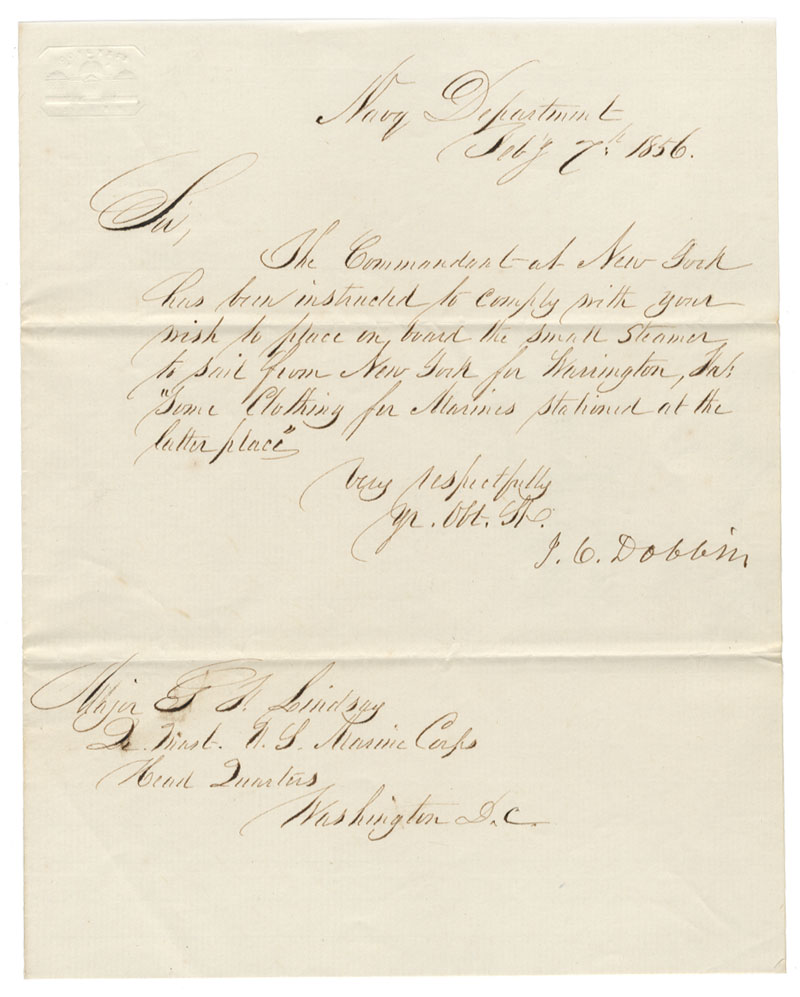 Navy Department
Feb'y 7th 1856.
Sir,
The Commandant at New York
has been instructed to comply with your
wish to place on board the small steamer
to sail from New York for Warrington, Fa:
"Some Clothing for Marines stationed at the
latter place"
Very respectfully
yr. Obt. St.
J. C. Dobbin
Major Lindsay
Qr. Mast. U. S. Marine Corps
Head Quarters
Washington D. C.